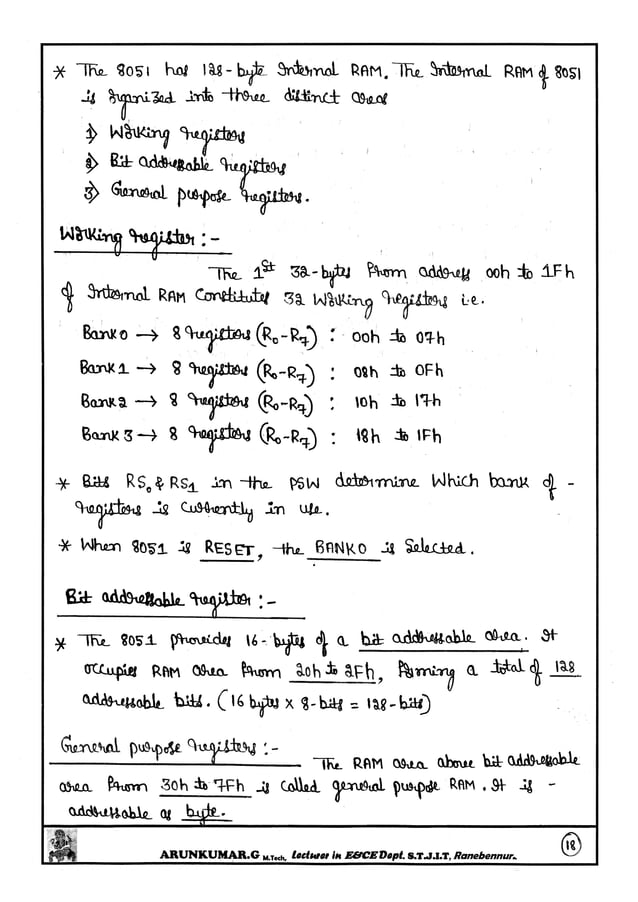 * The 8051 has 128-byte Internal RAM. The Internal RAM of 8051
is organized into three distinct areas
1) Working registers
2) Bit addressable registers
3) General purpose registers.
Working register :-
The 1st 32-bytes from address 00h to 1Fh
of Internal RAM Constitutes 32 Working registers i.e.
Bank 0 → 8 registers (R0-R7) : 00h to 07h
Bank 1 → 8 registers (R0-R7) : 08h to 0Fh
Bank 2 → 8 registers (R0-R7) : 10h to 17h
Bank 3 → 8 registers (R0-R7) : 18h to 1Fh
* Bits RS0 & RS1 in the PSW determine Which bank of -
registers is currently in use.
* When 8051 is RESET, the BANK0 is Selected.
Bit addressable register :-
* The 8051 provides 16-bytes of a bit addressable area. It
occupies RAM area from 20h to 2Fh, forming a total of 128
addressable bits. (16 bytes X 8-bits = 128-bits)
General purpose registers :-
The RAM area above bit addressable
area from 30h to 7Fh is called general purpose RAM. It is -
addressable as byte.
ARUNKUMAR.G M.Tech, Lecturer in E&CE Dept. S.T.J.I.T, Ranebennur.
18